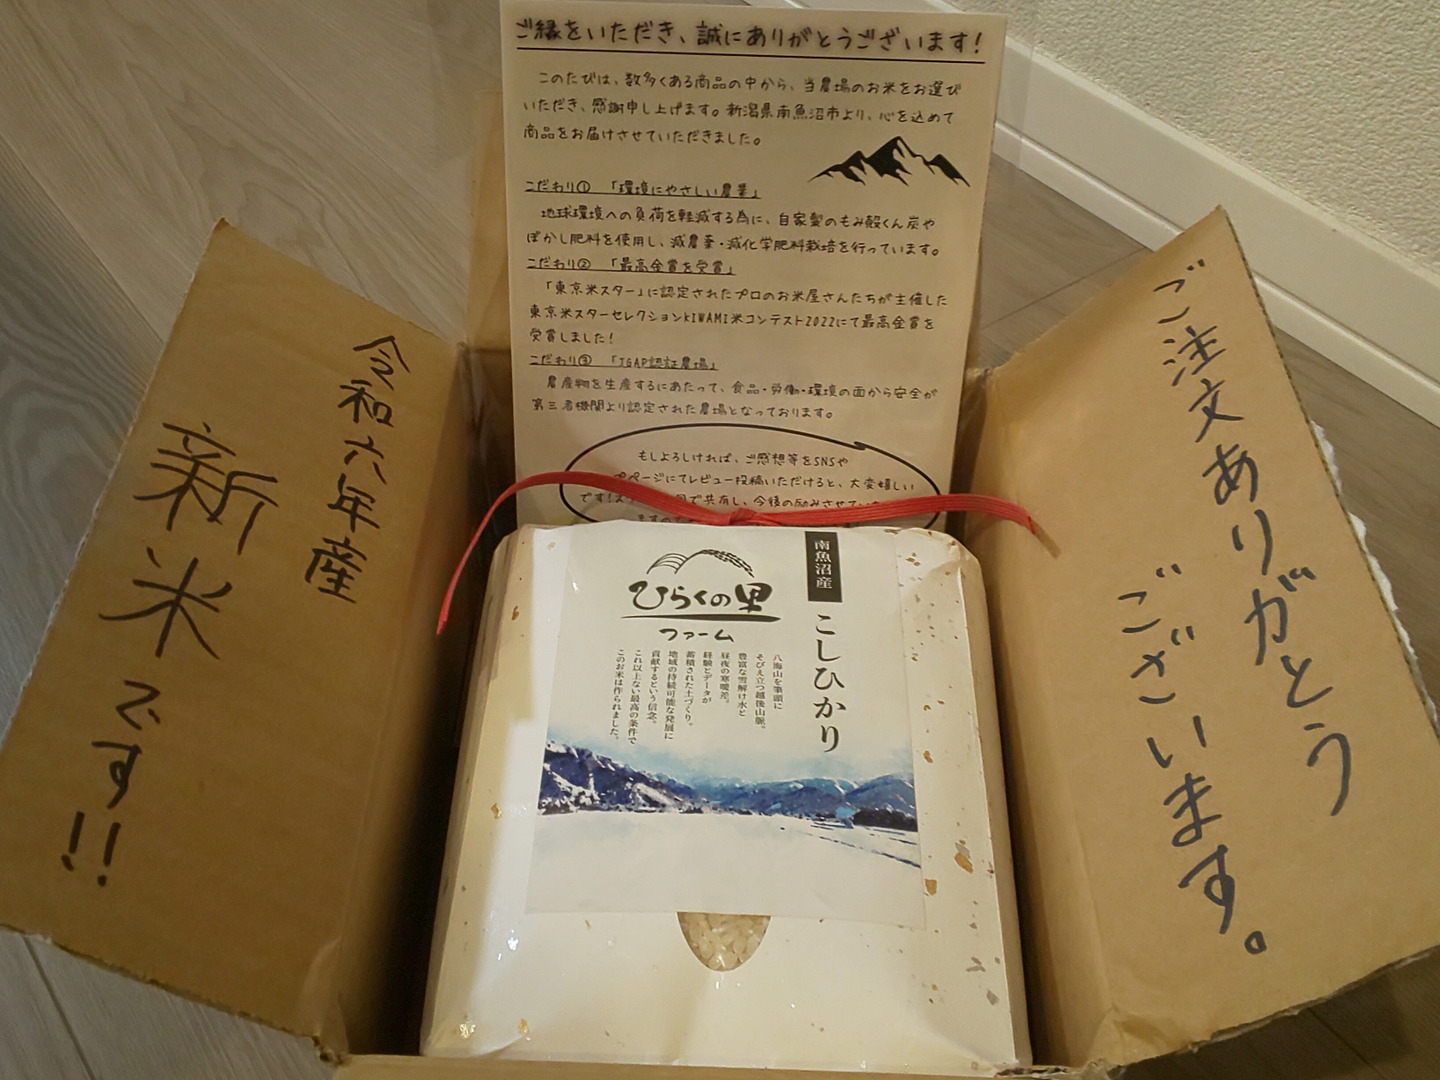 ご縁をいただき、誠にありがとうございます！
このたびは、数多くある商品の中から、当農場のお米をお選び
いただき、感謝申し上げます。新潟県南魚沼市より、心を込めて
商品をお届けさせていただきました。
こだわり① 「環境にやさしい農業」
地球環境への負荷を軽減する為に、自家製のもみ殻くん炭や
ぼかし肥料を使用し、減農薬・減化学肥料栽培を行っています。
こだわり② 「最高金賞を受賞」
「東京米スター」に認定されたプロのお米屋さんたちが主催した
東京米スターセレクションKIWAMI米コンテスト2022にて最高金賞を
受賞しました！
こだわり③ 「JGAP認証農場」
農産物を生産するにあたって、食品・労働・環境の面から安全が
第三者機関より認定された農場となっております。
もしよろしければ、ご感想等をSNSや
プページにてレビュー投稿いただけると、大変嬉しい
です！ス
で共有し、今後の励みさせてい
令和六年産
新米です!!
ご注文ありがとう
ございます。
ひらくの里
ファーム
南魚沼産
こしひかり
八海山を筆頭に
そびえ立つ越後山脈。
豊富な雪解け水と
昼夜の寒暖差。
経験とデータが
蓄積された土づくり。
地域の持続可能な発展に
貢献するという信念。
これ以上ない最高の条件で
このお米は作られました。